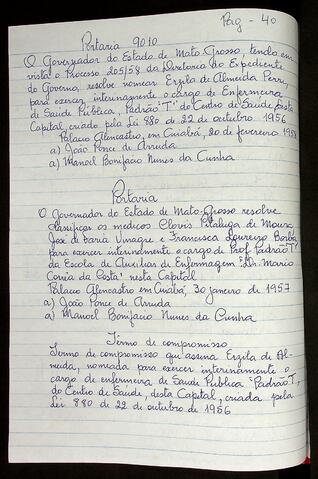 Pag - 40
Portaria 9010
O Governador do Estado de Mato-Grosso, tendo em
vista o Processo 205/58 da Diretoria do Expediente
do Governo, resolve nomear Ezila de Almeida Perri,
para exercer interinamente o cargo de Enfermeira
de Saúde Pública, Padrão "T" do Centro de Saúde, desta
Capital, criado pela Lei 880 de 22 de outubro 1956
Palacio Alencastro, em Cuiabá, 20 de fevereiro 1958
a) João Ponce de Arruda
a) Manoel Bonifacio Nunes da Cunha
Portaria
O Governador do Estado de Mato-Grosso resolve
classificar os medicos Clovis Pitaluga de Moura,
José de Faria Vinagre e Francisca Lourenço Borba
para exercer interinamente o cargo de Prof. Padrão T
da Escola de Auxiliar de Enfermagem "Dr. Mario
Correia da Costa" nesta Capital
Palacio Alencastro em Cuiabá, 30 janeiro de 1957
a) João Ponce de Arruda
a) Manoel Bonifacio Nunes da Cunha
Têrmo de compromisso
Termo de compromisso que assina Ezila de Al-
meida, nomeada para exercer interinamente o
cargo de enfermeira de Saude Publica "Padrão T",
do Centro de Saúde, desta Capital, criada pela
Lei 880 de 22 de outubro de 1956